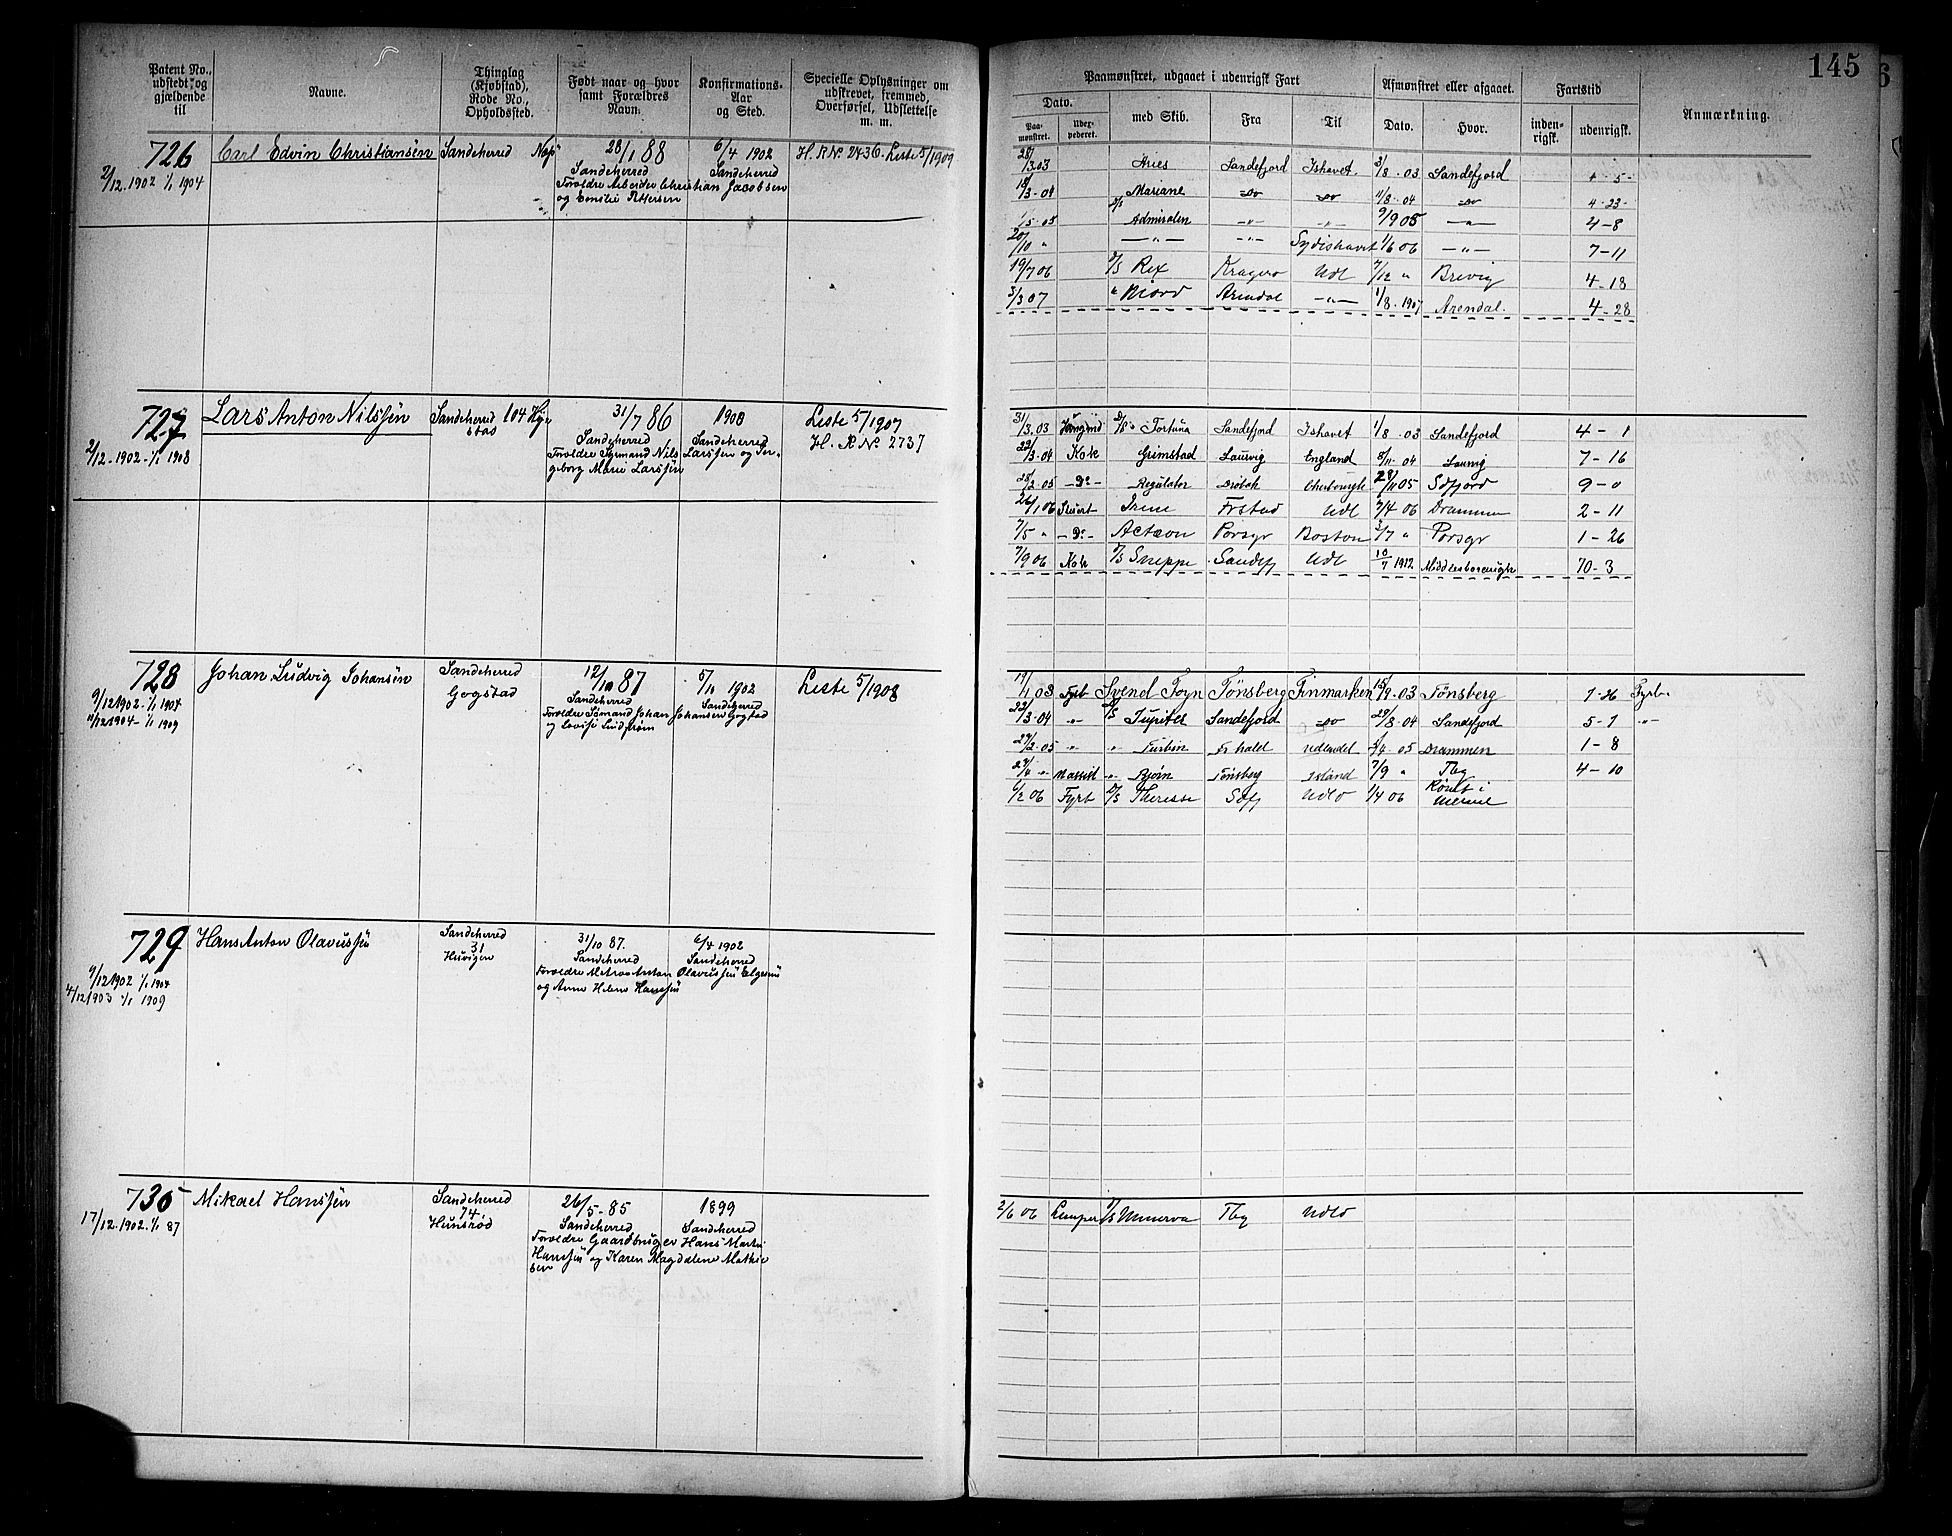 145
Patent No., udstedt og gjældende til
Navne.
Thinglag (Kjøbstad), Rode No., Opholdssted.
Født naar og hvor samt Forældres Navn.
Konfirmations-Aar og Sted.
Specielle Oplysninger om udskrevet, fremmed, Overførsel, Udslettelse m. m.
Paamønstret, udgaaet i udenrigsk Fart
Afmønstret eller afgaaet.
Fartstid
Anmærkning.
Dato.
Paa-mønstret.
med Skib.
Fra
Til
Dato.
Hvor.
inden-rigsk.
udenrigsk.
726
2/12.1902 1/1 1904
Carl Edvin Christiansen
Sandeherred
28/1 88
Sandeherred
Forældre Arbeider Christian Jacobsen
og Emilie Pettersen
6/4 1902
Sandeherred
H. R No. 2436. Liste 5/1909
28/3.03 Aries Sandefjord Ishavet. 3/8.03 Sandefjord 4 5
18/3-04 Mariane -do- -do- 4/8.04 -do- 4-23-
1/5.05 D/S Admiralen -"- -"- 9/9 05 -"- 4-8
20/10 " -"- -"- Sydishavet 1/6 06 -"- 7-11
19/7 06 D/S Rex Kragerø Udl 7/12 " Brevig 4-18
3/3 07 " Njord Arendal -"- 1/8.1907 Arendal. 4-28
727
2/12.1902-1/1 1908
Lars Anton Nilssen
Sandeherred 104
31/7 86
Sandeherred
Forældre Sømand Nils Larssen og In-
geborg Marie Larssen
1900
Sandeherred
Liste 5/1907
H. R No 2737
31/3.03 D/S Fortuna Sandefjord Ishavet 1/8.03 Sandefjord 4-1
22/3.04 Kok Grimstad Laurvig England 8/11.04 Laurvig 7-16
28/2.05 -Do- Regulator Drøbak 28/11 05 Sdfjord 9-0
26/1 06 Irene Frstad Udl 7/4 06 Drammen 2-11
7/5 " -Do- Actæon Porsgr Boston 3/7 " Porsgr 1-26
7/9 06 Kok D/S Sneppe Sandefj Udl 10/7 1912 70-3
728
9/12 1902-1/1 1904
1/12 1904-1/1 1909
Johan Ludvig Johansen
Sandeherred
Gogstad
12/10 87
Sandeherred
Forældre Sømand Johan Johansen Gogstad
og Lovise Lindstrøm
5/10 1902
Sandeherred
Liste 5/1908
19/1 03 Fyrb Svend Foyn Tønsberg Finmarken 15/9.03 Tønsberg 7-26 Fyrb.
22/3.04 -"- D/S Jupiter Sandefjord -do- 29/8.04 Sandefjord 5-7 -"-
27/2.05 -"- " Fr hald udlandet 4.05 Drammen 1-8
27/4 " " Bjørn Tønsberg Island 7/9 " Tbg 4-10
6/2 06 Fyrb D/S Therese Sdfj Udld 1/4 06 Rømt i
729
9/12 1902 1/1 1904
4/12 1903 1/1 1909
Hans Anton Olavussen
Sandeherred
31
Huvigen
31/10 87.
Sandeherred
Forældre Matros Anton Olavussen
og Anne Helene Hanssen
6/4 1902
Sandeherred
730
17/12.1902. 1/1 87
Mikael Hanssen
Sandeherred
74
Hunsrød
26/5-85
Sandeherred
Forældre Gaardbruger Hans Martin
Hanssen og Karen Magdalene Mathie
sen
1899
Sandeherred
2/6 06 Lemper D/S Minerva Tbg Udld